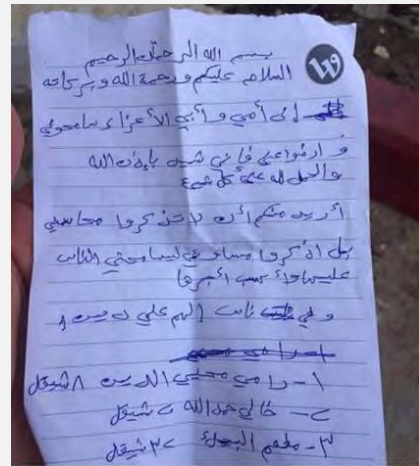 بسم الله الرحمن الرحيم
السلام عليكم ورحمة الله وبركاته
إلى أمي و أبي الأعزاء سامحوني
و ارضوا عني فإني شهيد بإذن الله
والحمد لله على كل شيء
أريد منكم أن لا تذكروا محاسني
بل اذكروا مساوئي ليسامحني الناس
عليها
و في ناس إلهم علي دين
١- رامي محيي الدين ٨ شيقل
٢- خالي عبد الله ٢ شيقل
٣- مطعم ٢٣ شيقل